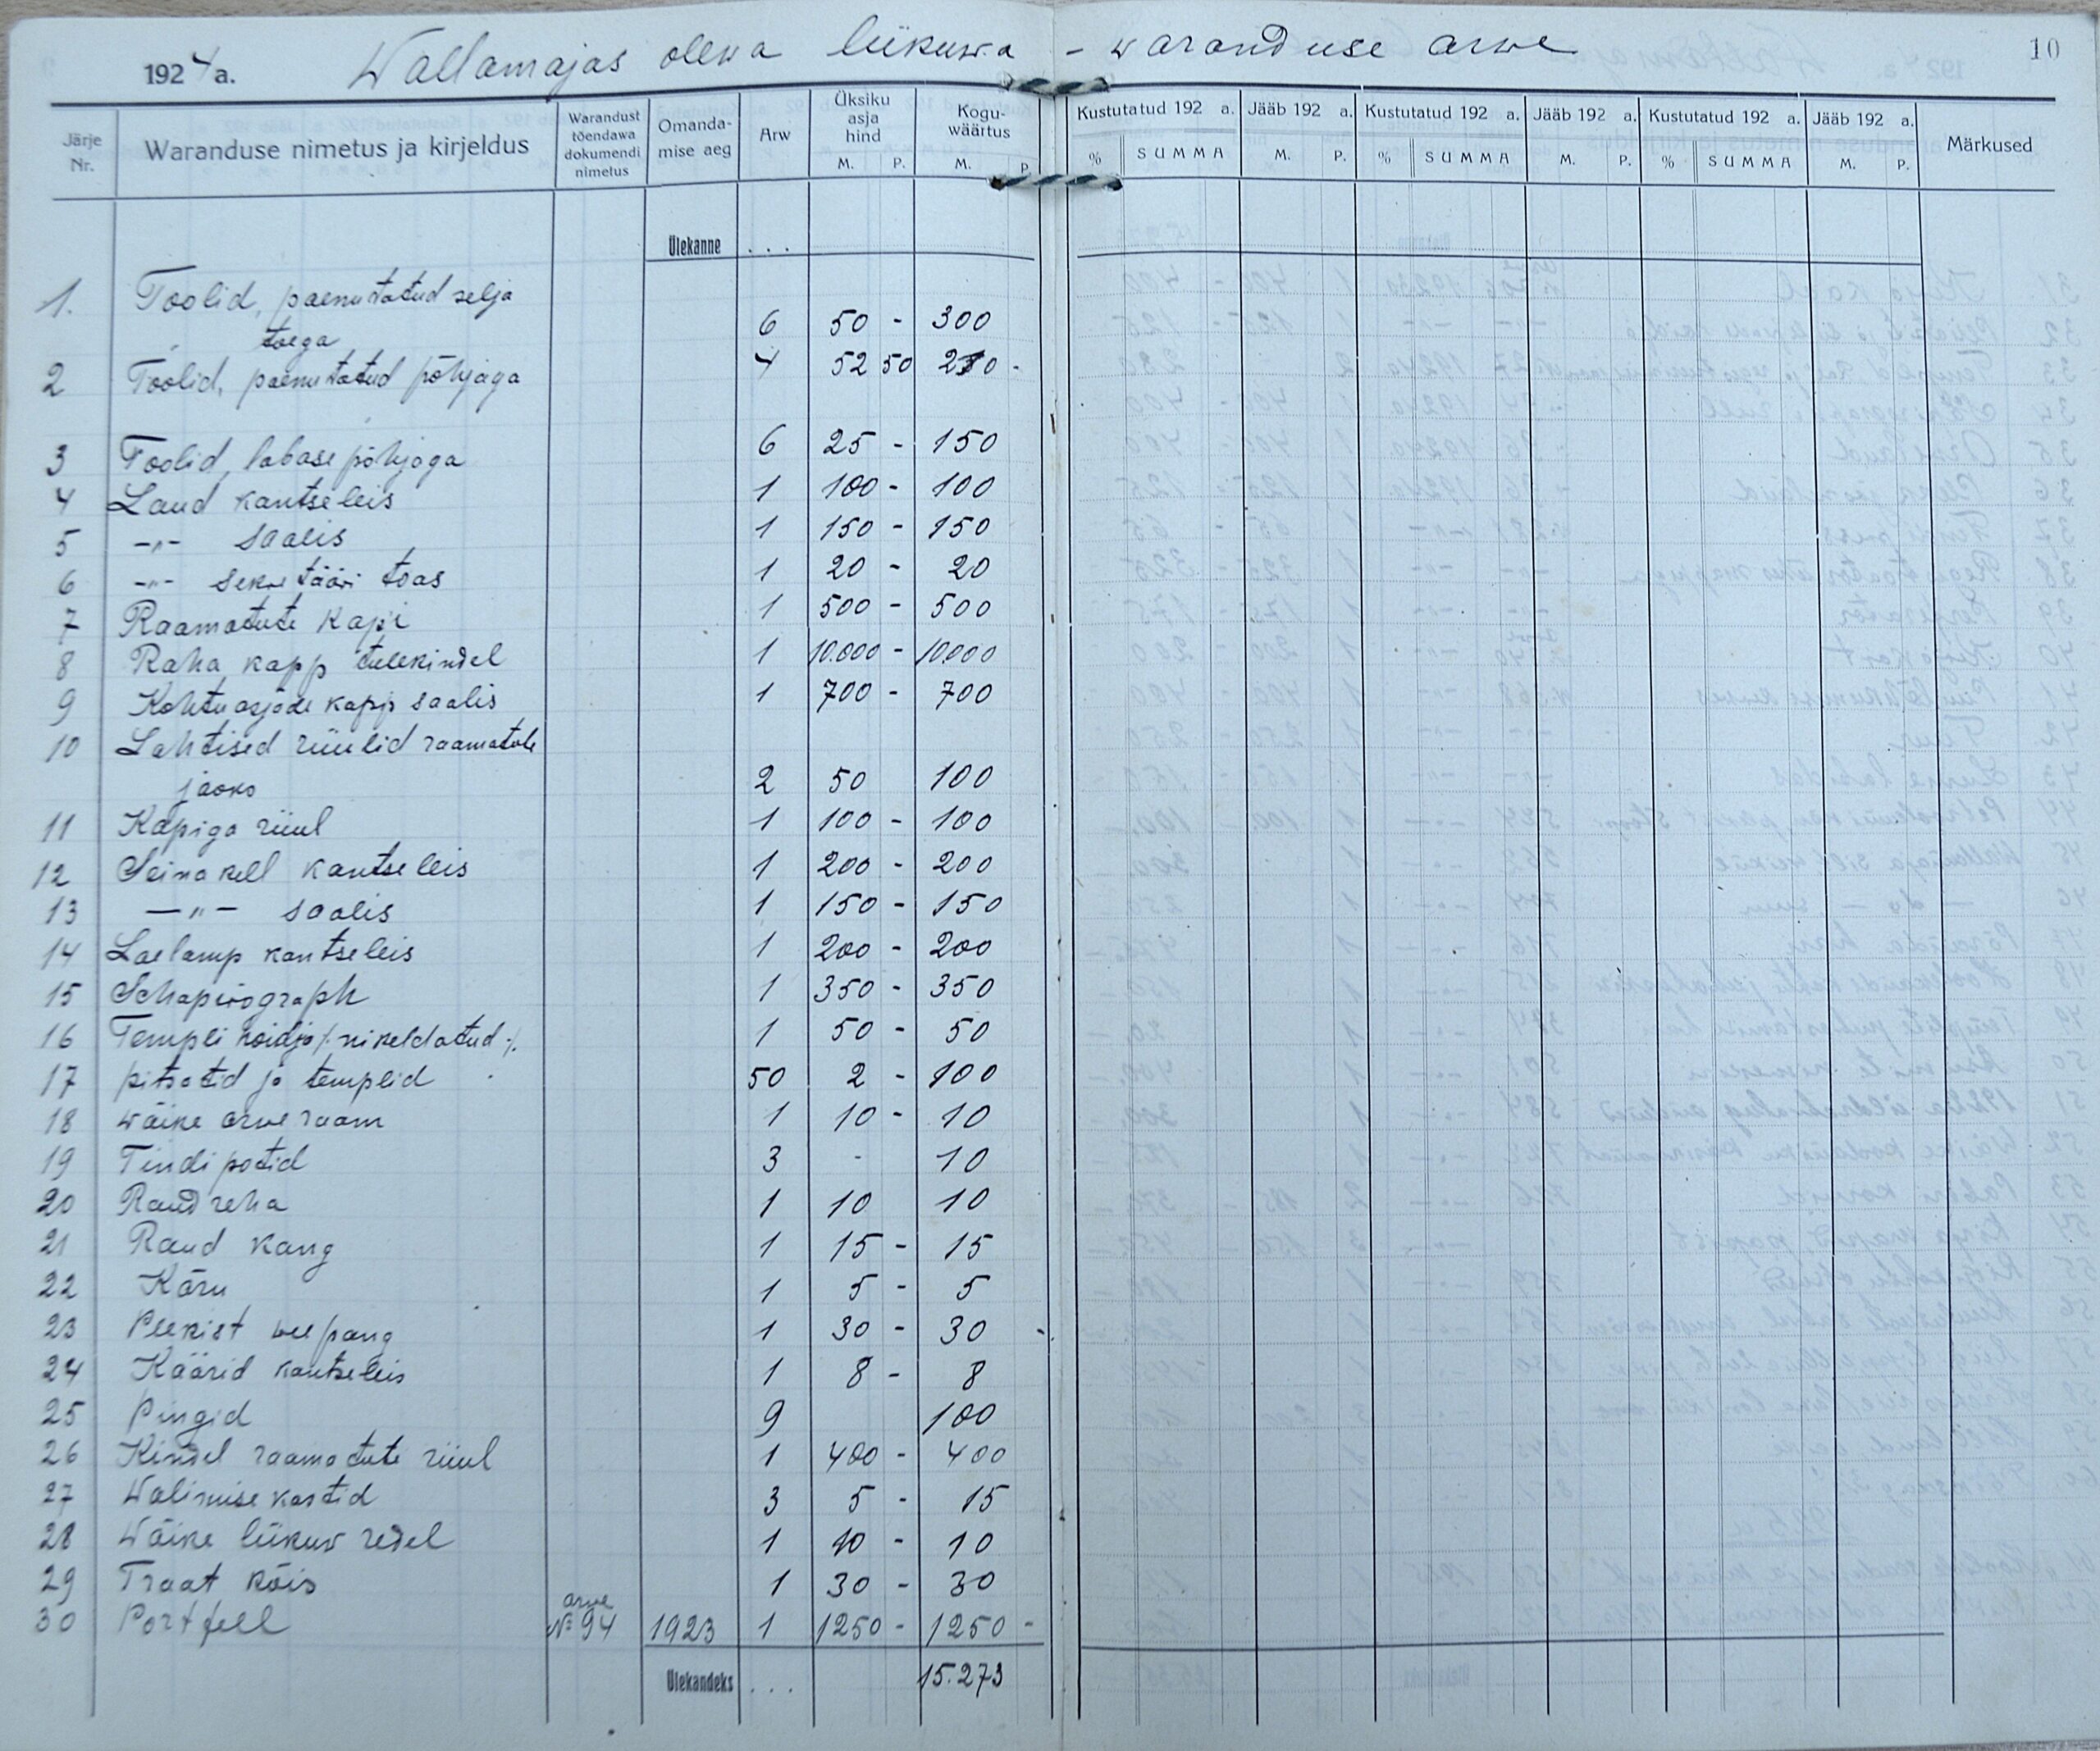 1924 a. Wallamajas olewa liikuwa - waranduse arwe 10
Järje Nr. Waranduse nimetus ja kirjeldus Warandust tõendawa dokumendi nimetus Omandamise aeg Arw Üksiku asja hind M. P. Koguwäärtus M. P. Kustutatud 192 a. % SUMMA Jääb 192 a. M. P. Kustutatud 192 a. % SUMMA Jääb 192 a. M. P. Kustutatud 192 a. % SUMMA Jääb 192 a. M. P. Märkused
Ülekanne . . .
1. Toolid, paenutatud selja
toega 6 50 - 300
2 Toolid, paenutatud põhjaga 4 52 50 210 -
3 Toolid, labase põhjaga 6 25 - 150
4 Laud kantseleis 1 100 - 100
5 -"- saalis 1 150 - 150
6 -"- sekretääri toas 1 20 - 20
7 Raamatute kapi 1 500 - 500
8 Raha kapp tulekindel 1 10.000 - 10.000
9 Kohtuasjade kapp saalis 1 700 - 700
10 Lahtised riiulid raamatute
jaoks 2 50 100
11 Kapiga riiul 1 100 - 100
12 Seina kell kantseleis 1 200 - 200
13 -"- saalis 1 150 - 150
14 Laelamp kantseleis 1 200 - 200
15 Schapirograph 1 350 - 350
16 Templi hoidja /. nikeldatud ./. 1 50 - 50
17 pitsatid ja templid 50 2 - 100
18 wäike arwe raam 1 10 - 10
19 Tindi potid 3 - 10
20 Raud reha 1 10 10
21 Raud kang 1 15 - 15
22 Käru 1 5 - 5
23 Plekist weepang 1 30 - 30
24 Käärid kantseleis 1 8 - 8
25 Pingid 9 100
26 Kindel raamatute riiul 1 400 - 400
27 Walimise kastid 3 5 - 15
28 Wäike liikuw redel 1 10 - 10
29 Traat köis 1 30 - 30
30 Portfell arve № 94 1923 1 1250 - 1250 -
Ülekandeks . . . 15.273